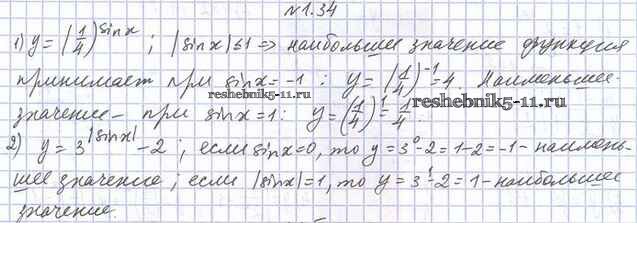 №1.34
1) y = (1/4)^sinx ; |sinx| ≤ 1 => наибольшее значение функция
принимает при sinx = -1 : y = (1/4)^-1 = 4. Наименьшее
reshebnik5-11.ru reshebnik5-11.ru
значение – при sinx = 1 : y = (1/4)^1 = 1/4.
2) y = 3^|sinx| - 2 ; если sinx = 0, то y = 3^0 - 2 = 1 - 2 = -1 - наимень-
шее значение ; если |sinx| = 1, то y = 3^1 - 2 = 1 - наибольшее
значение.